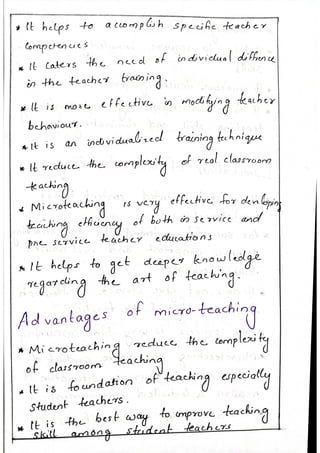 * It helps to accomplish specific teacher
Competencies
* It caters the need of individual diffrence
in the teacher training.
* It is more effective in modifying teacher
behaviour.
* It is an individualized training technique
* It reduce the complexity of real classroom
teaching
* Microteaching is very effective for developing
teaching efficiency of both in service and
pre service teacher educations
* It helps to get deeper knowledge
regarding the art of teaching.
Advantages of micro-teaching
* Microteaching reduce the complexity
of classroom teaching
* It is foundation of teaching especially
Student teachers.
* It is the best way to improve teaching
skill among student teachers